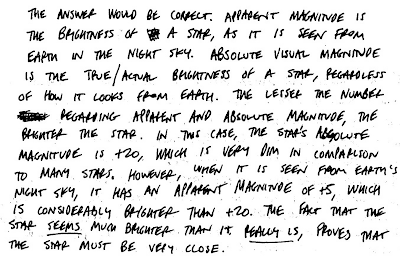 THE ANSWER WOULD BE CORRECT. APPARENT MAGNITUDE IS
THE BRIGHTNESS OF A STAR, AS IT IS SEEN FROM
EARTH IN THE NIGHT SKY. ABSOLUTE VISUAL MAGNITUDE
IS THE TRUE/ACTUAL BRIGHTNESS OF A STAR, REGARDLESS
OF HOW IT LOOKS FROM EARTH. THE LESSER THE NUMBER
REGARDING APPARENT AND ABSOLUTE MAGNITUDE, THE
BRIGHTER THE STAR. IN THIS CASE, THE STAR'S ABSOLUTE
MAGNITUDE IS +20, WHICH IS VERY DIM IN COMPARISON
TO MANY STARS. HOWEVER, WHEN IT IS SEEN FROM EARTH'S
NIGHT SKY, IT HAS AN APPARENT MAGNITUDE OF +5, WHICH
IS CONSIDERABLY BRIGHTER THAN +20. THE FACT THAT THE
STAR SEEMS MUCH BRIGHTER THAN IT REALLY IS, PROVES THAT
THE STAR MUST BE VERY CLOSE.